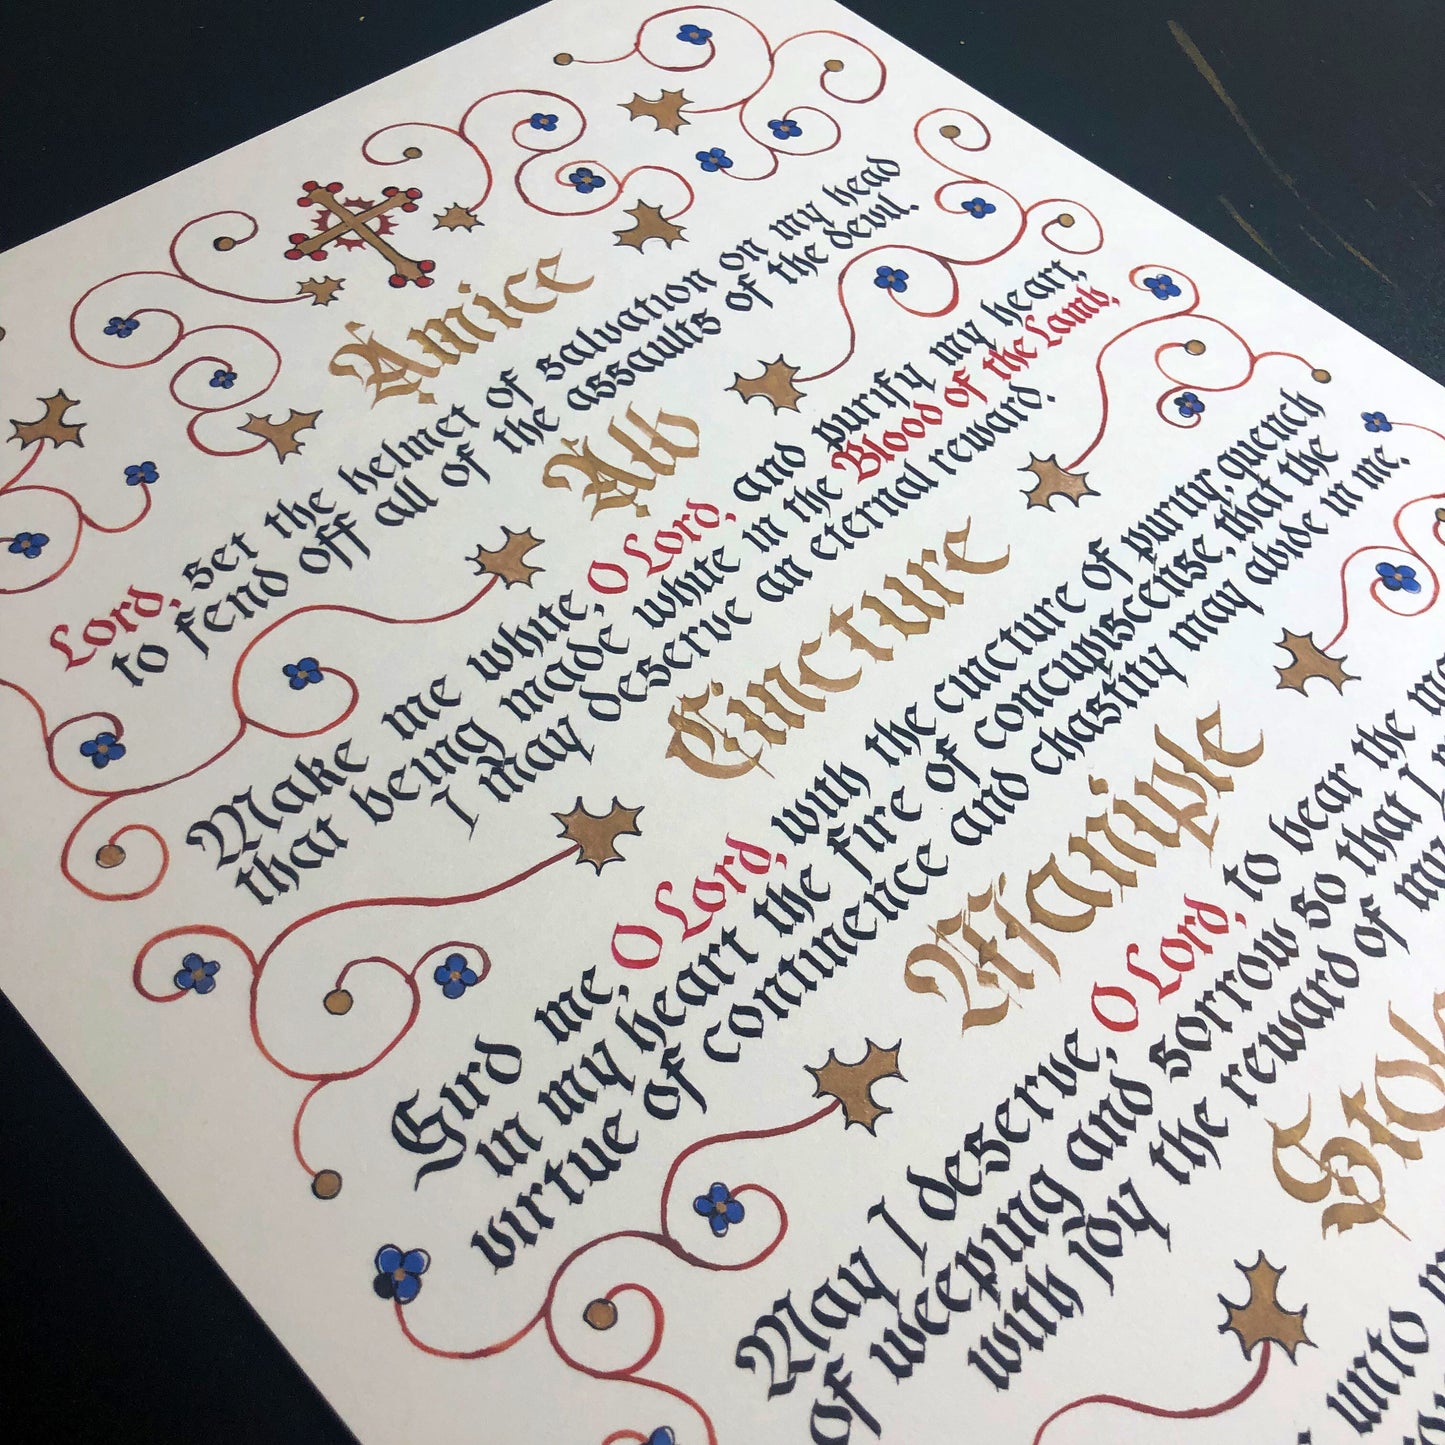 Amice
Lord, set the helmet of salvation on my head
to fend off all of the assaults of the devil.
Alb
Make me white, O Lord, and purify my heart,
that being made white in the Blood of the Lamb,
I may deserve an eternal reward.
Cincture
Gird me, O Lord, with the cincture of purity, quench
in my heart the fire of concupiscense, that the
virtue of continence and chastity may abide in me.
Maniple
May I deserve, O Lord, to bear the
of weeping and sorrow so that I
with joy the reward of my
Stole
unto